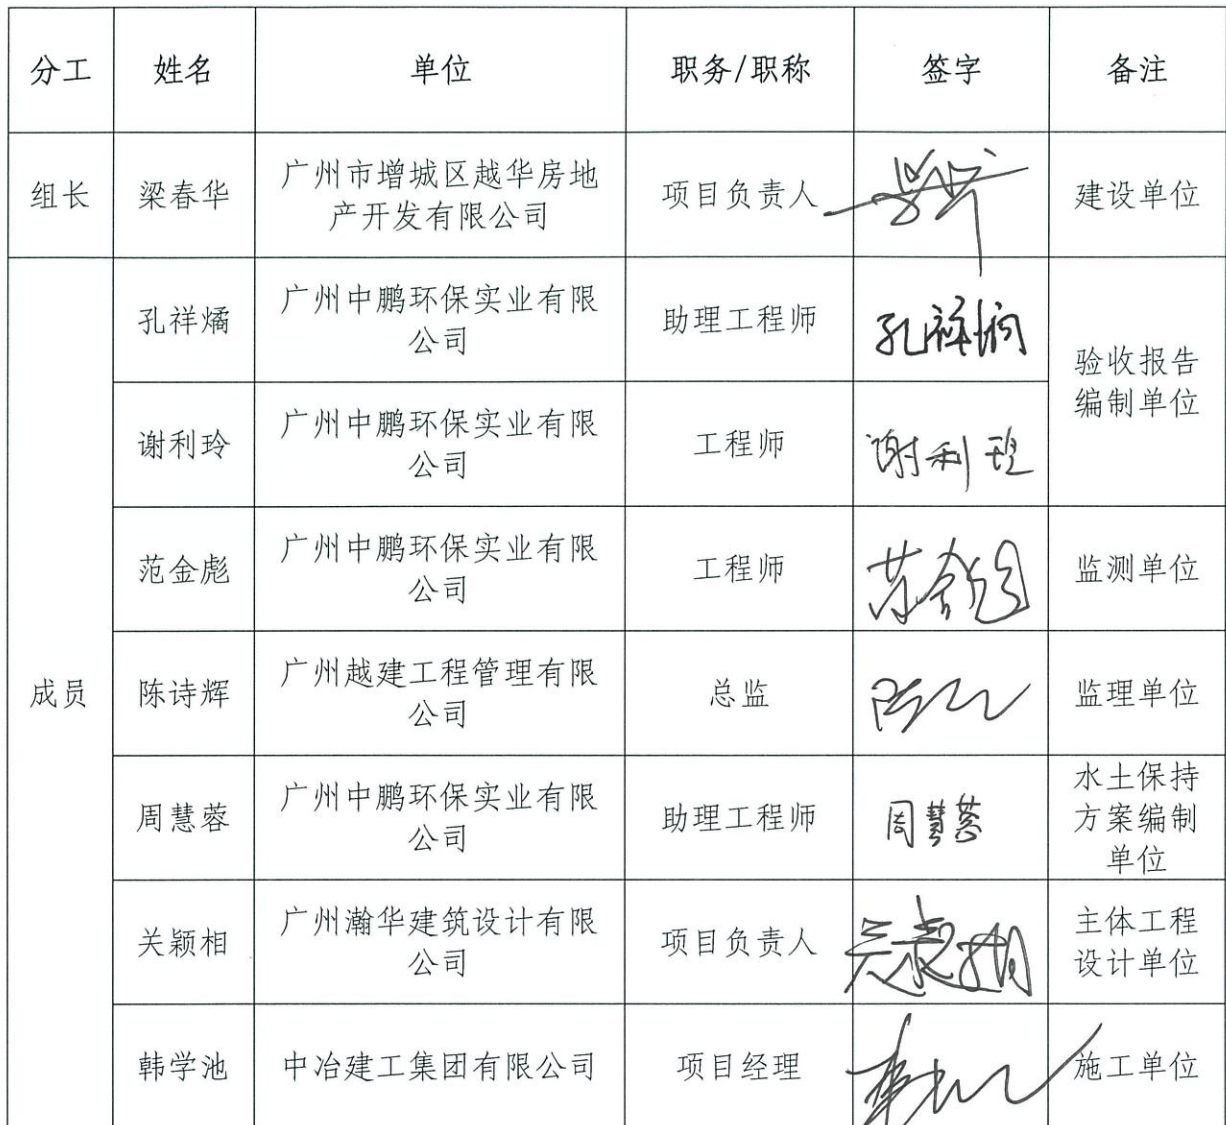 分工 姓名 单位 职务/职称 签字 备注
组长 梁春华 广州市增城区越华房地
产开发有限公司 项目负责人 建设单位
孔祥燏 广州中鹏环保实业有限
公司 助理工程师 孔祥燏
验收报告
编制单位
谢利玲 广州中鹏环保实业有限
公司 工程师 谢利玲
范金彪 广州中鹏环保实业有限
公司 工程师 范金彪 监测单位
成员
陈诗辉 广州越建工程管理有限
公司 总监 监理单位
周慧蓉 广州中鹏环保实业有限
公司 助理工程师 周慧蓉
水土保持
方案编制
单位
关颖相 广州瀚华建筑设计有限
公司 项目负责人 关颖相
主体工程
设计单位
韩学池 中冶建工集团有限公司 项目经理 施工单位